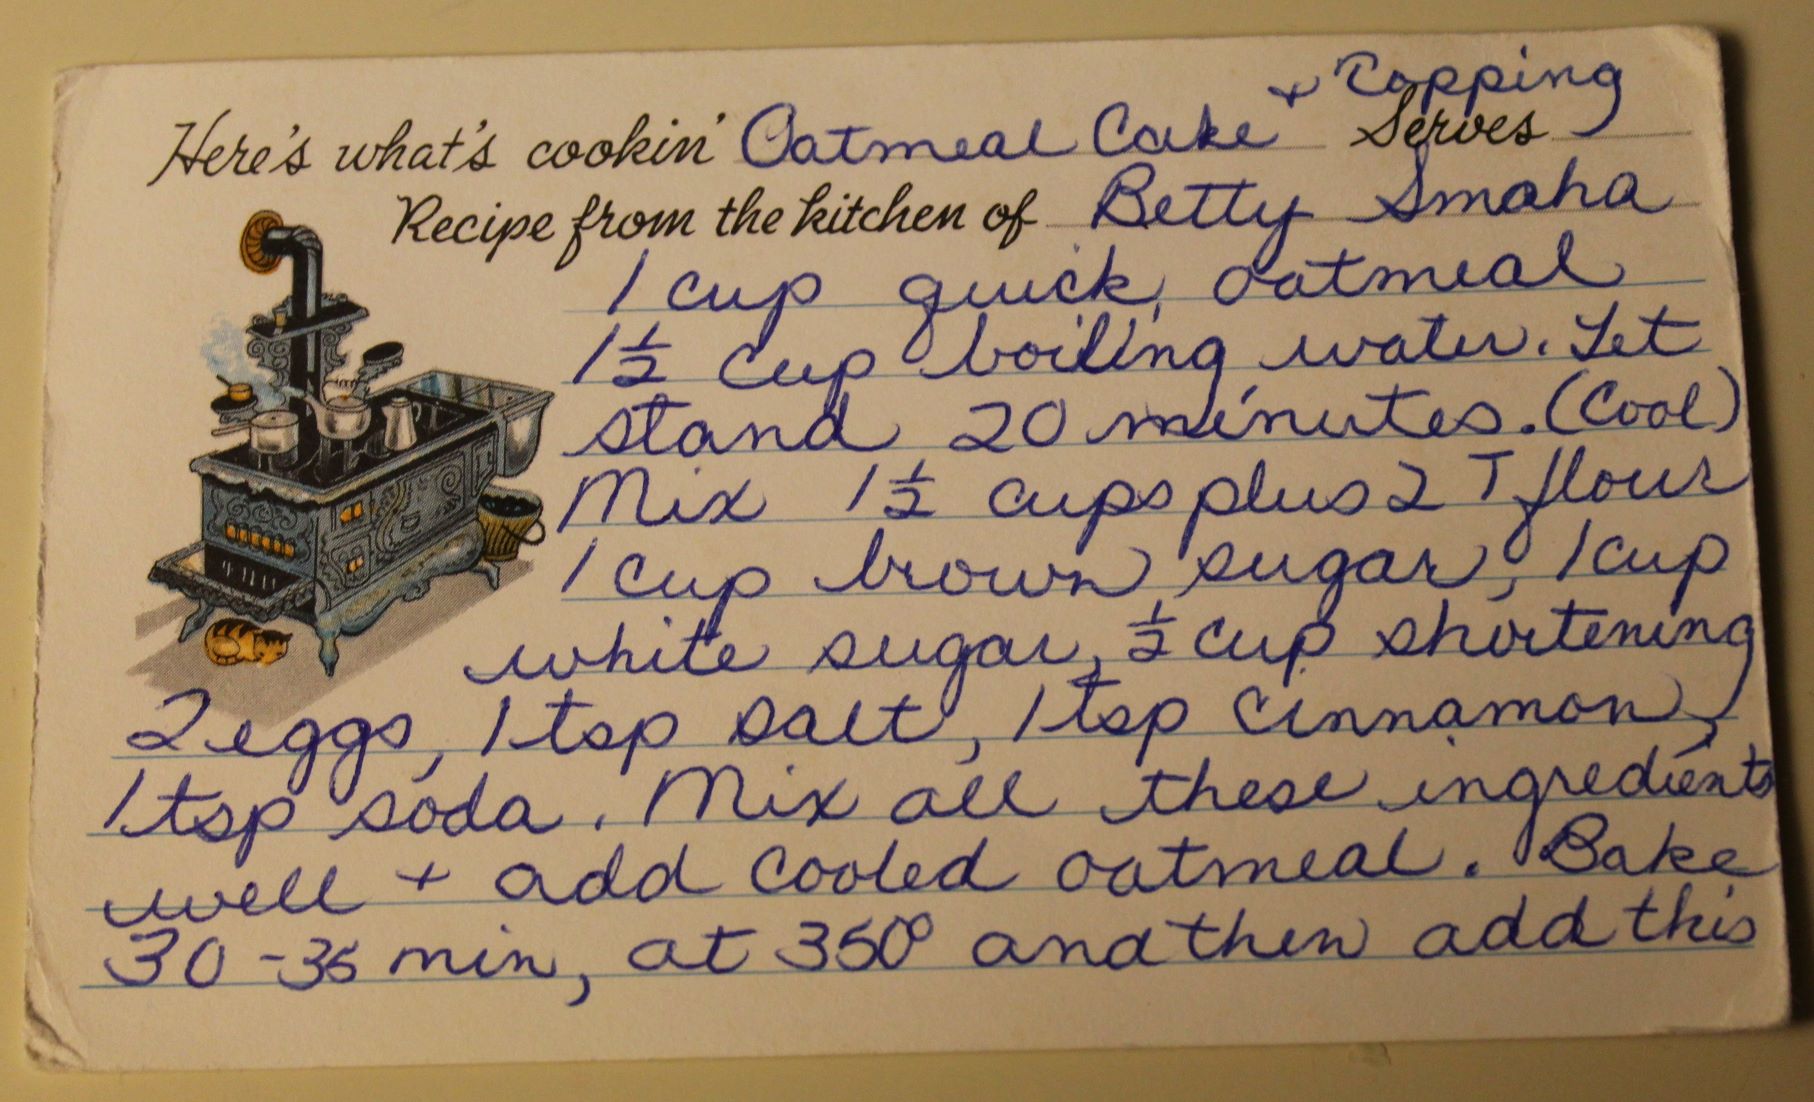 Here's what's cookin' Oatmeal Cake + Topping Serves
Recipe from the kitchen of Betty Smaha
1 cup quick oatmeal
1 ½ cup boiling water. Let
stand 20 minutes. (Cool)
Mix 1 ½ cups plus 2 T flour
1 cup brown sugar, 1 cup
white sugar, ½ cup shortening
2 eggs, 1 tsp salt, 1 tsp cinnamon,
1 tsp soda. Mix all these ingredients
well + add cooled oatmeal. Bake
30-35 min, at 350° and then add this